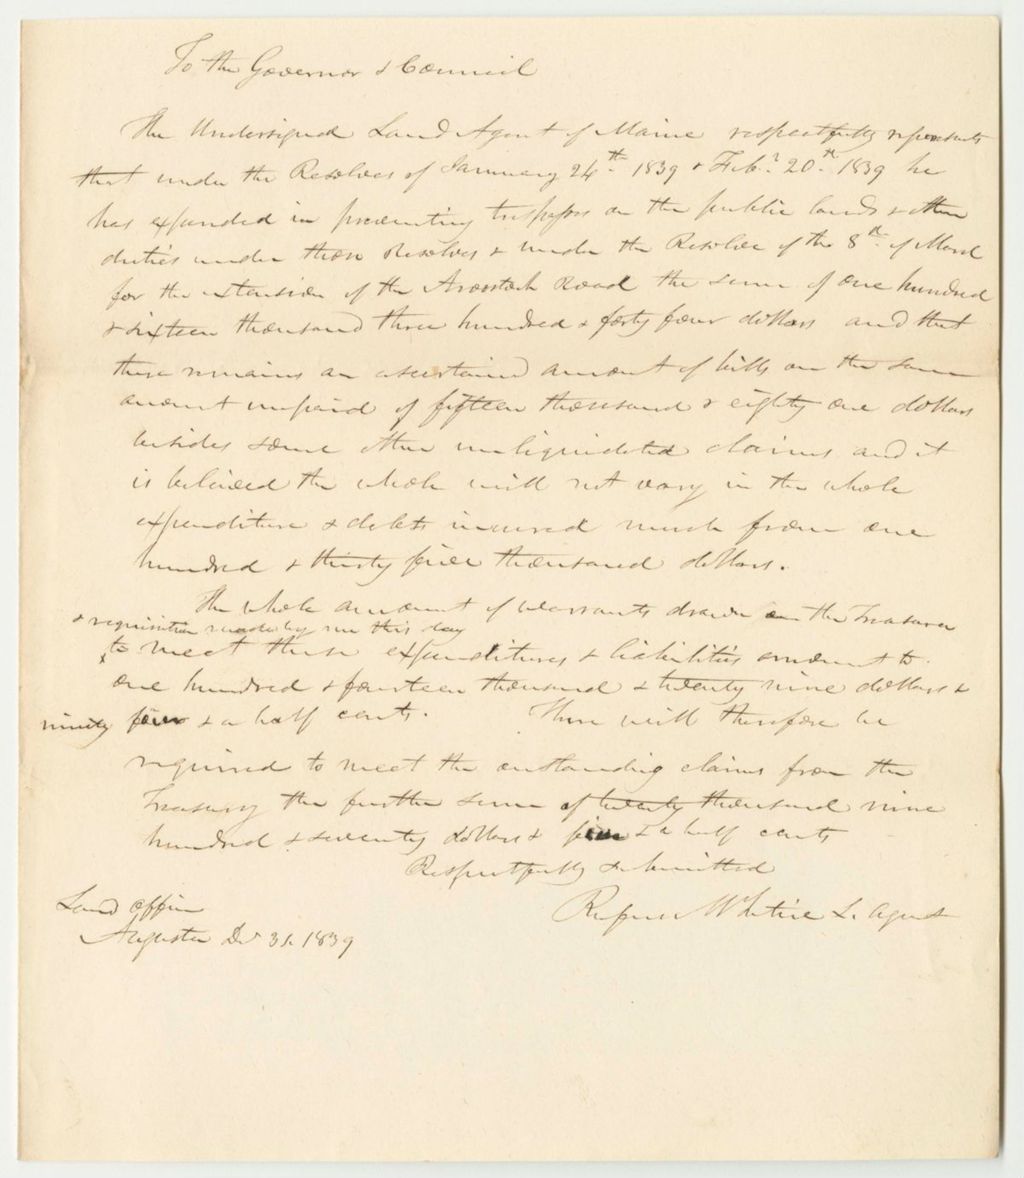 To the Governor & Council
The Undersigned Land Agent of Maine respectfully represents
that under the Resolves of January 24th 1839 & Feby 20th 1839 he
has expended in preventing trespass on the public lands & other
duties under those Resolves & under the Resolve of the 8th of March
for the extension of the Aroostook Road the sum of one hundred
& sixteen thousand three hundred & forty four dollars and that
there remains an ascertained amount of bills on the same
amount unpaid of fifteen thousand & eighty one dollars
besides some other unliquidated claims and it
is believed the whole will not vary in the whole
expenditure & debts incurred much from one
hundred & thirty five thousand dollars.
The whole amount of warrants drawn on the Treasurer
& requisition made by me this day
to meet these expenditures & liabilities amount to
one hundred & fourteen thousand & twenty nine dollars &
ninety four & a half cents. There will therefore be
required to meet the outstanding claims from the
Treasury the further sum of twenty thousand nine
hundred & seventy dollars & five & a half cents
Respectfully submitted
Rufus McIntire L. Agent
Land office
Augusta Dec 31. 1839